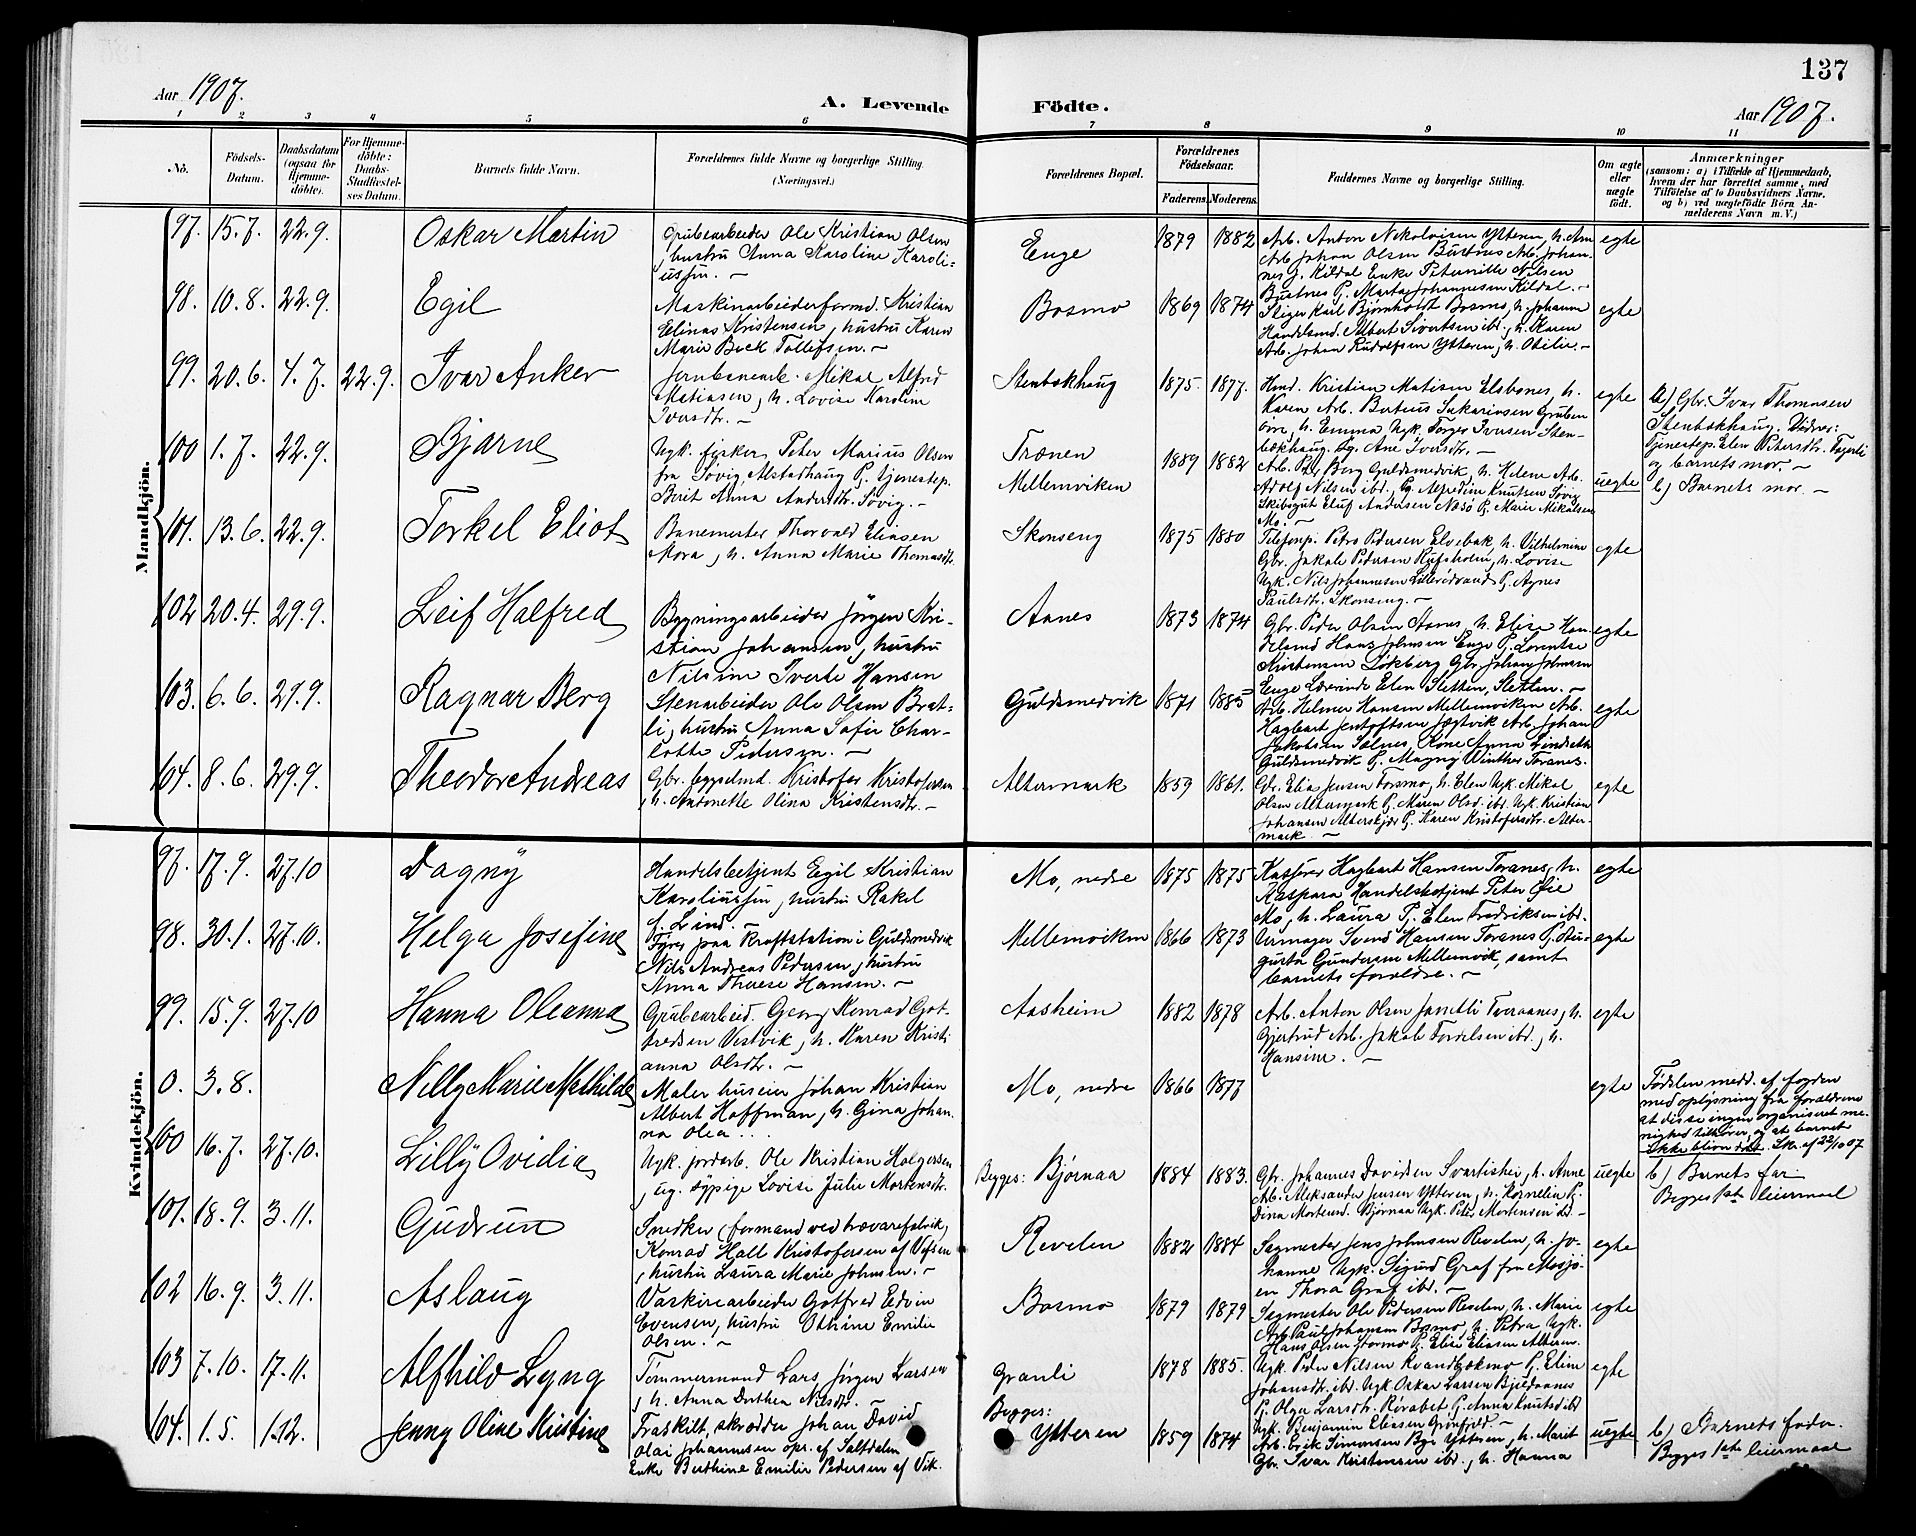 137
Aar 1907.
A. Levende
Födte.
Aar 1907.
1 2 3 4 5 6 7 8 9 10 11
No.
Födsels-
Datum.
Daabsdatum
(ogsaa for
Hjemme-
döbte).
For Hjemme-
döbte:
Daabs-
Stadfæstel-
ses Datum.
Barnets fulde Navn.
Forældrenes fulde Navne og borgerlige Stilling.
(Næringsvei.)
Forældrenes Bopæl.
Forældrenes
Födselsaar.
Faderens. Moderens.
Faddernes Navne og borgerlige Stilling.
Om ægte
eller
uægte
födt.
Anmærkninger
(saasom: a) i Tilfælde af Hjemmedaab,
hvem der har forrettet samme, med
Tilföielse af to Daabsvidners Navne,
og b) ved uægtefödte Börn An-
melderens Navn m. V.)
Mandkjön.
97. 15.7. 22.9. Oskar Martin
Grubearbeider Ole Kristian Olsen
, hustru Anna Karoline Karoli-
ussen. —
Enge 1879 1882
Arb. Anton Nikolaisen Ytteren, h. An
Arb. Johan Olsen Bustnes Arb. Johan-
nes J. Kildal Enke Peternille Nilsen
Bustnes P. Marta Johannesen Kildal. —
egte
98. 10.8. 22.9. Egil
Maskinarbeiderformd. Kristian
Elinas Kristensen, hustru Karen
Marie Beck Tollefsen. —
Bosmo 1869 1874
Stiger Karl Bjørnholdt Bosmo, h. Johanne
Handelsmd. Albert Sivertsen ibd, h. Karen
Arb. Johan Rudolfsen Ytteren, h. Otilie. —
egte
99. 20.6. 4.7. 22.9. Ivar Anker
Jernbanearb. Mikal Alfred
Matiasen, h. Lovise Karoline
Iversdtr. —
Stenbækhaug 1875. 1877.
Hmd. Kristian Matisen Elsbones, h.
Karen Arb. Berteus Sakariasen Gruben
øvre, h. Emma Ugk. Torger Iversen Sten-
bækhaug Pg. Ane Iversdtr. —
egte
a) Gbr. Ivar Thomassen
Stenbækhaug. Vidner:
Tjenestep. Elen Petersdtr. Fagerli
og barnets mor. —
100 1.7. 22.9. Bjarne
Ugk. fisker Peter Marius Olsen
fra Søvig Alstadhaug P. tjenestep.
Berit Anna Andersdtr. Søvig. —
Trænen
Mellemviken
1889 1882
Arb. Berg Guldsmedvik, h. Helene Arb.
Adolf Nilsen ibd, Pg. Alfredine Knutsen Søvig
Skibsgut Eluf Andersen Næsø P. Marie Mikalsen
Mo. —
uegte
b) Barnets mor. —
101. 13.6. 22.9. Torkel Eliot
Banemester Thorvald Eliasen
Mora, h. Anna Marie Thomasdtr.
Skonseng 1875 1880
Telefonp. Petro Pedersen Elvebak, h. Vilhelmine
Gbr. Jakob Pedersen Rufsholm, h. Lovise
Ugk. Nils Johannesen Lillerødvand P. Agnes
Paulsdtr. Skonseng. —
egte
102 20.4. 29.9. Leif Halfred
Bygningsarbeider Jørgen Kri-
stian Johansen, hustru
Nilsine Iverte Hansen
Aanes 1873 1874
Gbr. Peder Olsen Aanes, h. Elise Han-
delsmd Hans Johnsen Enge P. Lorentse
Kristensen Løkberg Gbr. Johan Johnsen
Enge Lærerinde Elen Sletten, Sletten. —
egte
103. 6.6. 29.9. Ragnar Berg
Stenarbeider Ole Olsen Brat-
li, hustru Anna Sofie Char-
lotte Pedersen. —
Guldsmedvik 1871 1885
Arb. Helmer Hansen Mellemviken Arb.
Hagbart Jentoftsen Jægtvik Arb. Johan
Jakobsen Selnes, Kone Anna Lindseth
Guldsmedvik P. Magny Winther Toranes.
egte
104. 8.6. 29.9. Theodor Andreas
Gbr. bygselmd. Kristofer Kristofersen
, h. Antonette Olina Kristensdtr. —
Altermark 1859 1861.
Gbr. Elias Jensen Forsmo, h. Elen Ugk. Mikal
Olsen Altermark P. Maren Olsd. ibd. Ugk. Kristian
Johansen Alterskjær P. Karen Kristofersdtr. Alter-
mark. —
egte
Kvindekjön.
97. 17.9. 27.10 Dagny
Handelsbetjent Egil Kristian
Karoliussen, hustru Rakel
f. Lind. —
Mo, nedre 1875 1875
Kasserer Hagbart Hansen Toranes, h.
Kaspara Handelsbetjent Peter Øie
Mo, h. Laura P. Elen Fredriksen ibd.
egte
98. 30.1. 27.10. Helga Josefine
Fyrb. paa kraftstation i Guldsmedvik
Nils Andreas Pedersen, hustru
Anna Therese Hansen. —
Mellemviken 1866 1873
Urmager Svend Hansen Toranes P. Au-
gusta Gundersen Mellemvik, samt
barnets forældre. —
egte
99. 15.9. 27.10 Hanna Oleanna
Grubearbeid. Georg Konrad Got-
fredsen Vestvik, h. Karen Kristi-
anna Olsdtr. —
Aasheim 1882 1878
Arb. Anton Olsen Jamtli Tveraanes, h.
Gjertrud Arb. Jakob Tordelsen ibd., h.
Hansine. —
egte
0. 3.8. Nilly Marie Mathilde
Maler huseier Johan Kristian
Albert Hoffman, h. Gina Johan-
na Olea...
Mo, nedre 1866 1877 egte
Fødslen medd. af fogden
med oplysning fra forældrene
at disse ingen organiseret me-
nighed tilhører, og at barnet
ikke bliver døbt. Skr. af 22/10 07
100 16.7. 27.10. Lilly Ovidia
Ugk. jordarb. Ole Kristian Holgersen
, ug. sypige Lovise Julie Mortensdtr.
Begges: Bjørnaa 1884 1883.
Gbr. Johannes Davidsen Svartisher, h. Anne
Arb. Aleksander Jensen Ytteren, h. Kornelie P.
Dina Mortensd. Bjørnaa Ugk. Peter Mortensen ibd —
uegte
b) Barnets far
Begges 1ste leiermaal
101. 18.9. 3.11. Gudrun
Snedker (formand ved trævarefabrik)
Konrad Hall Kristofersen af Vefsen
, hustru Laura Marie Johnsen. —
Revelen 1882 1884
Sagmester Jens Johnsen Revelen, h. Jo-
hanne Ugk. Sigurd Graf fra Mosjø-
en Thora Graf ibd. —
egte
102 16.9. 3.11. Aslaug
Vaskeriarbeider Gotfred Edvin
Evensen, hustru Othine Emilie
Olsen. —
Bosmo 1879 1879
Sagmester Ole Pedersen Revelen, h. Marie
Arb. Paul Johansen Bosmo, h. Petra Ugk.
Hans Olsen Forsmo P. Elise Eliasen Alteren.
egte
103 7.10. 17.11. Alfhild Lyng
Tømmermand Lars Jørgen Larsen
, h. Anna Dorthea Nilsdtr. —
Granli 1878 1885.
Ugk. Peder Nilsen Kvandbækmo P. Eline
Johansdtr. ibd. Ugk Oskar Larsen Bjeldaanes
P. Olga Larsdtr. Røvabet P. Anna Knutsd ibd
Ugk. Benjamin Eliasen Grønfjeld. —
egte
104. 1.5. 1.12. Jenny Oline Kristine
Fraskilt, skrædder Johan David
Olai Johannesen opr. af Saltdalen
Enke Berthine Emilie Pedersen af Vik.
Begges:
Ytteren 1859 1874
Arb. Erik Simonsen Bye Ytteren, h. Marit
Gbr. Ivar Kristensen ibd., h. Hanna
uegte
b) Barnets fader
Begges 1ste leiermaal